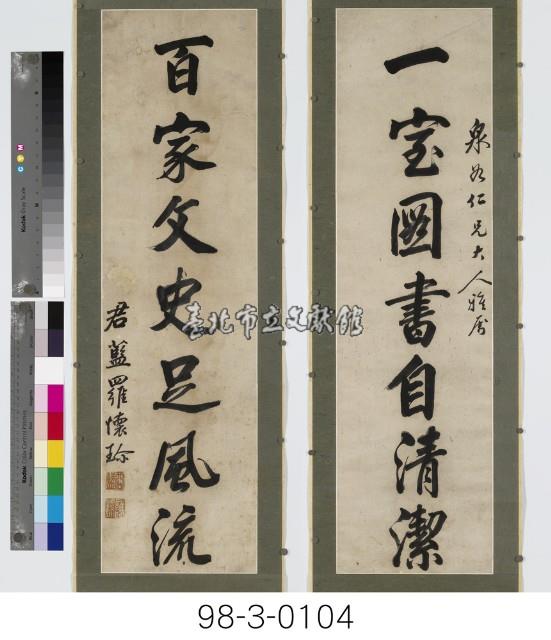 一室圖書自清潔
泉如仁兄大人雅屬
百家文史足風流
君藍羅懷珍
臺北市立文獻館
98-3-0104